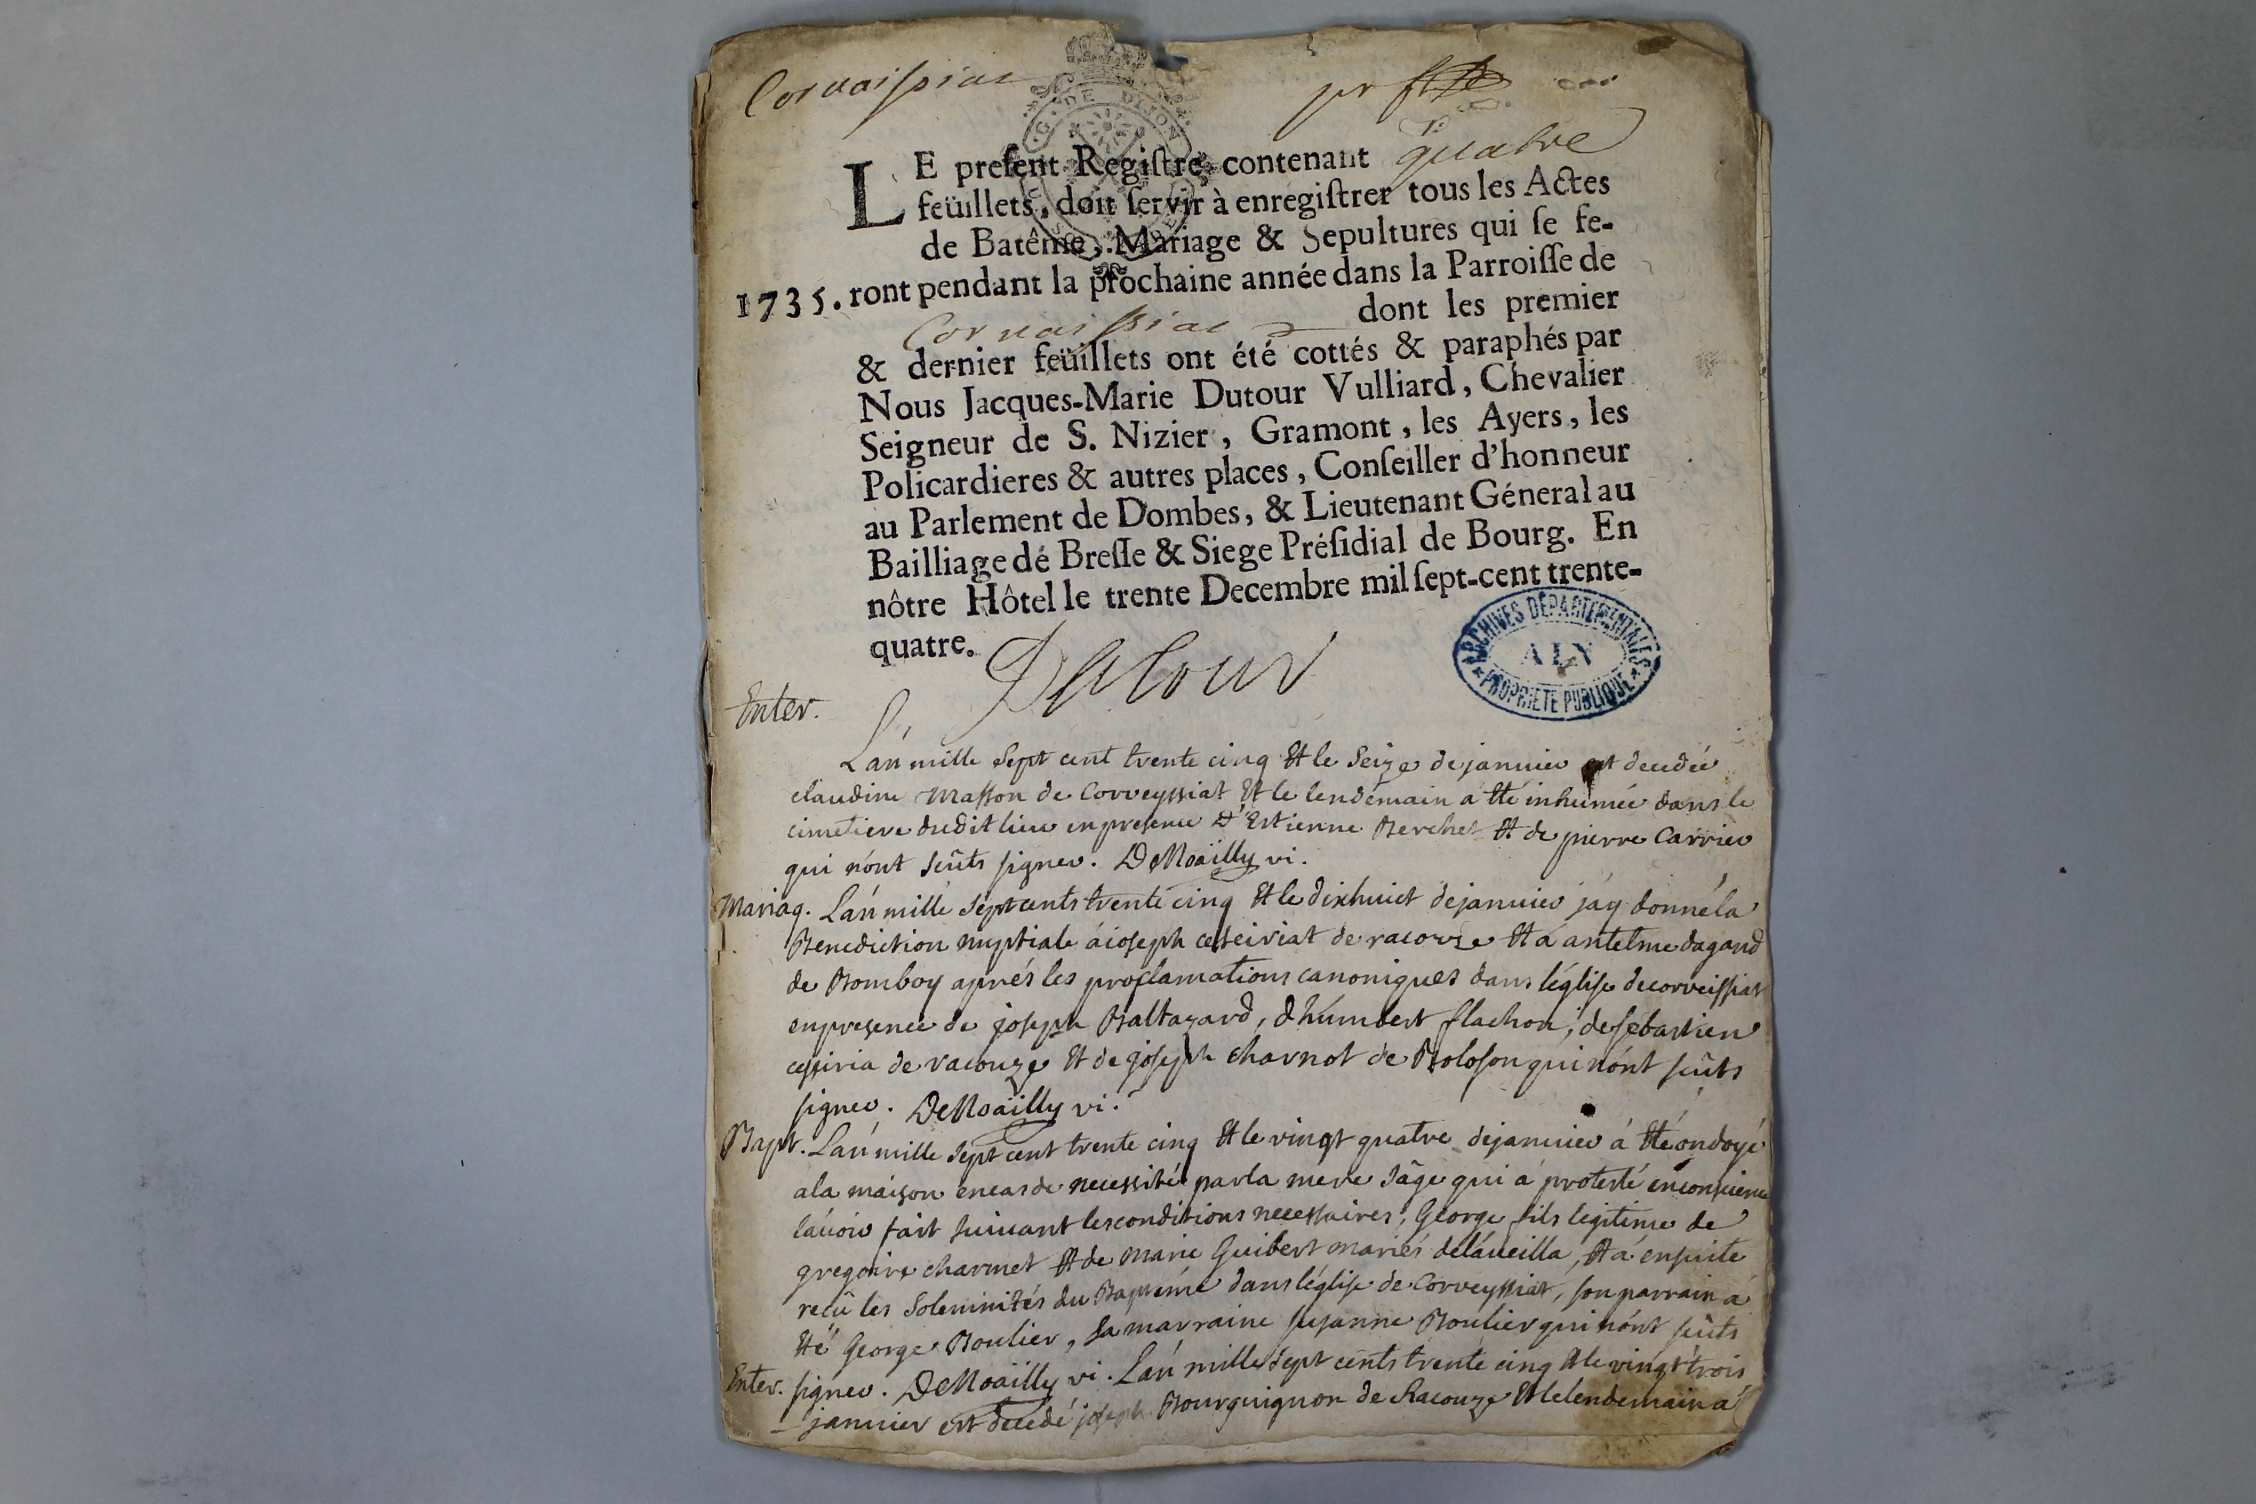 Corvaissiat
G. DE DIJON
LE present Registre contenant quatre
feüillets, doit servir à enregistrer tous les Actes
de Batême, Mariage & Sepultures qui se fe-
1735. ront pendant la prochaine année dans la Parroisse de
Corvaissiat dont les premier
& dernier feüillets ont été cottés & paraphés par
Nous Jacques-Marie Dutour Vulliard, Chevalier
Seigneur de S. Nizier, Gramont, les Ayers, les
Policardieres & autres places, Conseiller d'honneur
au Parlement de Dombes, & Lieutenant Géneral au
Bailliage dé Bresse & Siege Présidial de Bourg. En
nôtre Hôtel le trente Decembre mil sept-cent trente-
quatre.
Dutour
ARCHIVES DÉPARTEMENTALES
AIN
PROPRIÉTÉ PUBLIQUE
Enter.
L'an mille sept cent trente cinq Et le seize de janvier est decedée
claudine Masson de Corveyssiat Et le lendemain a été inhumée dans le
cimetiere dudit lieu en presence d'Estienne Berchet Et de pierre Carrier
qui n'ont sçûts signer. DeMoailly vi.
Mariag. L'an mille sept cents trente cinq Et le dixhuict de janvier j'ay donné la
Benediction nuptiale à joseph cesseiriat de racouze Et à antelme dagand
de Bomboy aprés les proclamations canoniques dans l'église de corveissiat
en presence de joseph Baltazard, d'humbert flachon, de sebastien
cessiria de racouze Et de joseph charnot de Boloson qui n'ont sçûts
signer. DeMoailly vi.
Bapt. L'an mille sept cent trente cinq Et le vingt quatre de janvier à Eté ondoyé
a la maison en cas de necessité par la mere sage qui a protesté en conscience
l'avoir fait suivant les conditions necessaires, George fils legitime de
gregoire charmet Et de marie Guibert mariés de l'aveilla, Et a ensuite
reçû les solemnités du Baptéme dans l'église de Corveyssiat, son parrain a
Eté George Boulier, sa marraine susanne Boulier qui n'ont sçûts
signer. DeMoailly vi.
Enter. L'an mille sept cents trente cinq Et le vingt trois
janvier est decedé joseph Bourguignon de Racouze Et le lendemain a